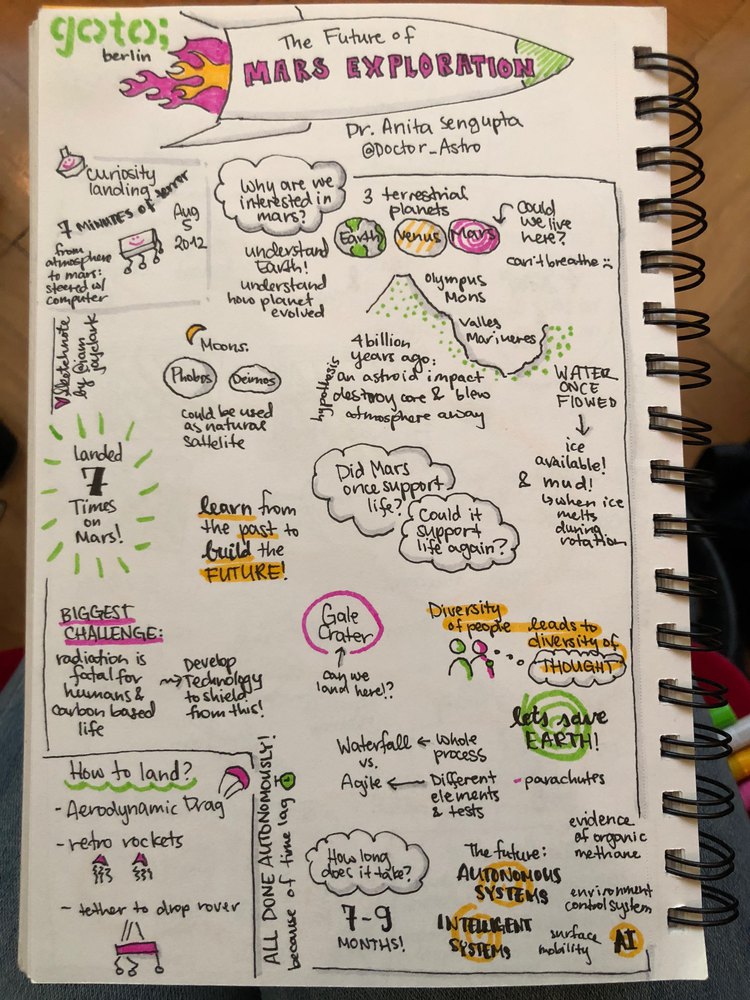 goto;
berlin
The Future of
MARS EXPLORATION
Dr. Anita Sengupta
@Doctor_Astro
curiosity
landing
7 minutes of terror
from
atmosphere
to mars:
steered w/
computer
Aug
5
2012
Why are we
interested in
mars?
understand
Earth!
understand
how planet
evolved
3 terrestrial
planets
Earth
Venus
Mars
Could
we live
here?
can't breathe :(
Olympus
Mons
Valles
Marineres
Sketchnote
by @iam
jayclark
Moons:
Phobos
Deimos
could be used
as natural
sattelite
hypothesis
4 billion
years ago:
an astroid impact
destroy core & blew
atmosphere away
WATER
ONCE
FLOWED
ice
available!
& mud!
when ice
melts
during
rotation
Landed
7
Times
on
Mars!
learn from
the past to
build the
FUTURE!
Did Mars
once support
life?
Could it
support
life again?
BIGGEST
CHALLENGE:
radiation is
fatal for
humans &
carbon based
life
Develop
Technology
to shield
from this!
Gale
Crater
can we
land here!?
Diversity
of people leads to
diversity of
THOUGHT
lets save
EARTH!
Waterfall ← whole
vs. process
Agile ← Different
elements
& tests
- parachutes
How to land?
- Aerodynamic Drag
- retro rockets
- tether to drop rover
ALL DONE AUTONOMOUSLY!
because of time lag
How long
does it take?
7-9
MONTHS!
The future:
AUTONOMOUS
SYSTEMS
INTELLIGENT
SYSTEMS
evidence
of organic
methane
environment
control system
surface
mobility
AI